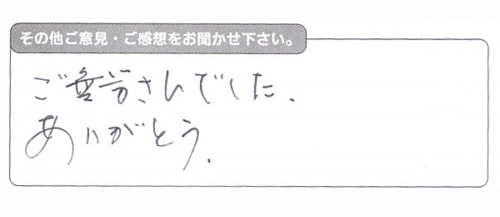 その他ご意見・ご感想をお聞かせ下さい。
ご苦労さんでした.
ありがとう.